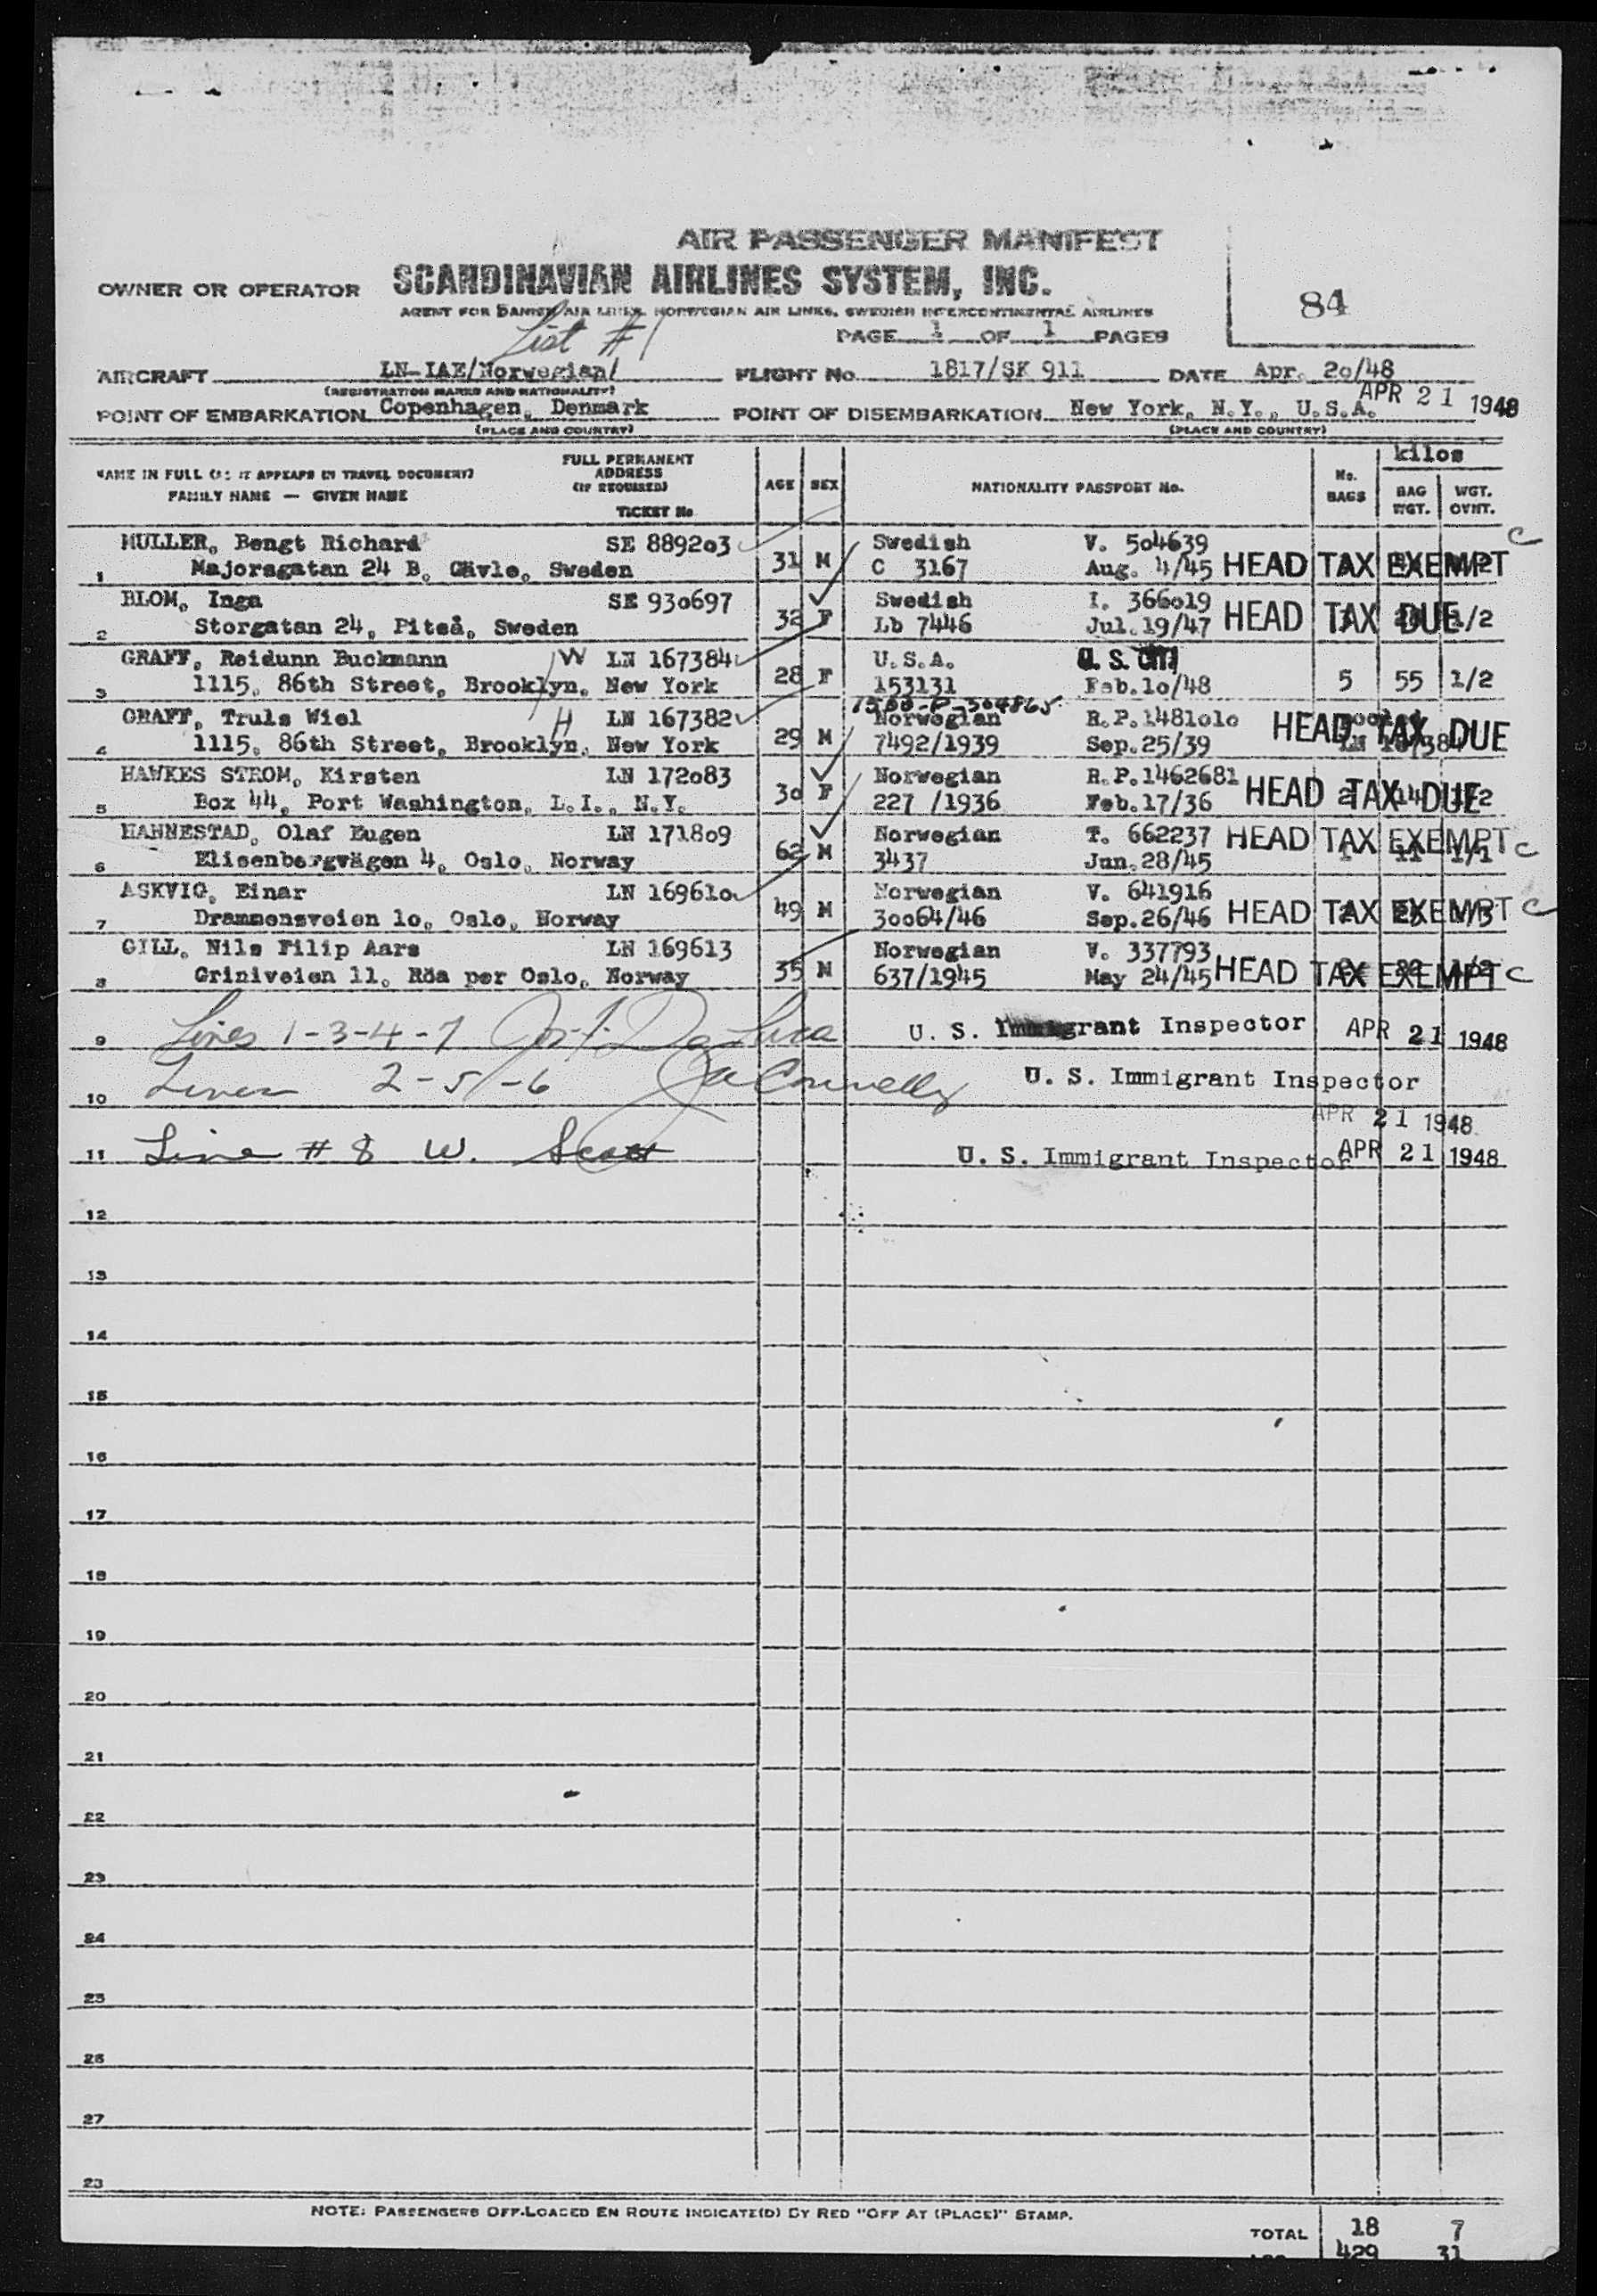 AIR PASSENGER MANIFEST
OWNER OR OPERATOR SCANDINAVIAN AIRLINES SYSTEM, INC.
84
AGENT FOR DANISH AIR LINES, NORWEGIAN AIR LINES, SWEDISH INTERCONTINENTAL AIRLINES
List #1
PAGE 1 OF 1 PAGES
AIRCRAFT LN-IAE/Norwegian/ FLIGHT No. 1817/SK 911 DATE Apr. 20/48
(REGISTRATION MARKS AND NATIONALITY)
APR 21 1948
POINT OF EMBARKATION Copenhagen, Denmark POINT OF DISEMBARKATION New York, N.Y., U.S.A.
(PLACE AND COUNTRY) (PLACE AND COUNTRY)
kilos
NAME IN FULL (AS IT APPEARS IN TRAVEL DOCUMENT)
FAMILY NAME — GIVEN NAME
FULL PERMANENT
ADDRESS
(IF REQUIRED)
TICKET No
AGE SEX NATIONALITY PASSPORT No. No. BAGS BAG WGT. WGT. OVHT.
MULLER, Bengt Richard SE 889203 Swedish V. 504639 C
1 Majorsgatan 24 B, Gävle, Sweden 31 M C 3167 Aug. 4/45 HEAD TAX EXEMPT
BLOM, Inga SE 930697 Swedish I. 366019
2 Storgatan 24, Piteå, Sweden 32 F Lb 7446 Jul.19/47 HEAD TAX DUE 1/2
GRAFF, Reidunn Buckmann W LN 167384 U.S.A. U. S. CIT
3 1115, 86th Street, Brooklyn, New York 28 F 153131 Feb.10/48 5 55 1/2
1500-P-304865
GRAFF, Truls Wiel H LN 167382 Norwegian R.P.1481010
4 1115, 86th Street, Brooklyn, New York 29 M 7492/1939 Sep.25/39 HEAD TAX DUE
HAWKES STROM, Kirsten LN 172083 Norwegian R.P.1462681
5 Box 44, Port Washington, L.I., N.Y. 30 F 227 /1936 Feb.17/36 HEAD TAX DUE
HAHNESTAD, Olaf Eugen LN 171809 Norwegian T. 662237 HEAD TAX EXEMPT C
6 Elisenbergvägen 4, Oslo, Norway 62 M 3437 Jun.28/45
ASKVIG, Einar LN 169610 Norwegian V. 641916
7 Drammensveien 10, Oslo, Norway 49 M 30064/46 Sep.26/46 HEAD TAX EXEMPT C
GILL, Nils Filip Aars LN 169613 Norwegian V. 337793
8 Griniveien 11, Röa per Oslo, Norway 35 M 637/1945 May 24/45 HEAD TAX EXEMPT C
9 Lines 1-3-4-7 Jos. F. De Luca U. S. Immigrant Inspector APR 21 1948
10 Lines 2-5-6 Connelly U. S. Immigrant Inspector
APR 21 1948
11 Line # 8 W. Scott U. S. Immigrant Inspector APR 21 1948
12
13
14
15
16
17
18
19
20
21
22
23
24
25
26
27
28
NOTE: PASSENGERS OFF-LOADED EN ROUTE INDICATE(D) BY RED "OFF AT (PLACE)" STAMP.
TOTAL 18 7
429 31